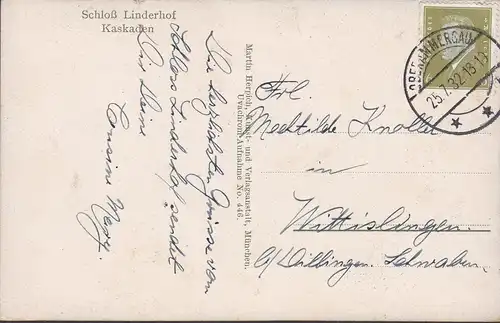 Schloß Linderhof
Kaskaden
Die herzlichsten Grüsse von
Schloss Linderhof sendet
Dir Deine
Cousine Mary.
Martin Herpich, Kunst- und Verlagsanstalt, München.
Uvachrom-Aufnahme No. 446.
OBERAMMERGAU
25.7.32.18-19
Frl.
Mechtilde Knoller
in
Wittislingen.
b/Dillingen. Schwaben.